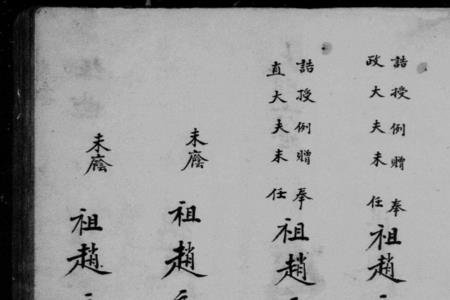 誥授例贈奉
政大夫未任
祖趙
誥授例贈奉
直大夫未任
祖趙
未廕
祖趙
未廕
祖趙